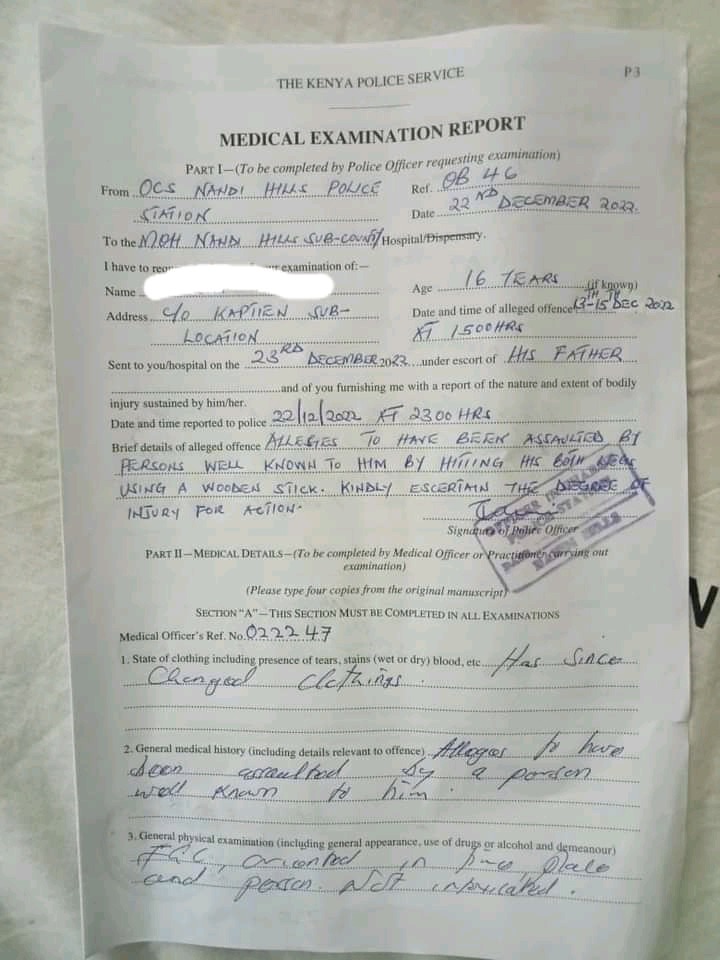 THE KENYA POLICE SERVICE
P3
MEDICAL EXAMINATION REPORT
PART I—(To be completed by Police Officer requesting examination)
From OCS NANDI HILLS POLICE STATION
Ref. OB 46
Date 22ND DECEMBER 2022.
To the MOH NANDI HILLS SUB-COUNTY Hospital/Dispensary.
I have to examination of:—
Name
Age 16 YEARS (if known)
Address C/O KAPTIEN SUB-LOCATION
Date and time of alleged offence 13TH-15TH DEC 2022
AT 1500HRS
Sent to you/hospital on the 23RD DECEMBER 2022 under escort of HIS FATHER
and of you furnishing me with a report of the nature and extent of bodily
injury sustained by him/her.
Date and time reported to police 22/12/2022 AT 2300 HRS
Brief details of alleged offence ALLEGES TO HAVE BEEN ASSAULTED BY
PERSONS WELL KNOWN TO HIM BY HITTING HIS BOTH LEGS
USING A WOODEN STICK. KINDLY ESCERTAIN THE DEGREE OF
INJURY FOR ACTION.
Signature of Police Officer
OFFICER IN CHARGE
POLICE STATION
NANDI HILLS
PART II—MEDICAL DETAILS—(To be completed by Medical Officer or Practitioner carrying out
examination)
(Please type four copies from the original manuscript)
SECTION "A"—THIS SECTION MUST BE COMPLETED IN ALL EXAMINATIONS
Medical Officer's Ref. No. 022247
1. State of clothing including presence of tears, stains (wet or dry) blood, etc. Has Since
Changed clothings.
2. General medical history (including details relevant to offence) Alleges to have
been assaulted by a person
well known to him.
3. General physical examination (including general appearance, use of drugs or alcohol and demeanour)
FGC, oriented in time, place
and person. Not intoxicated.